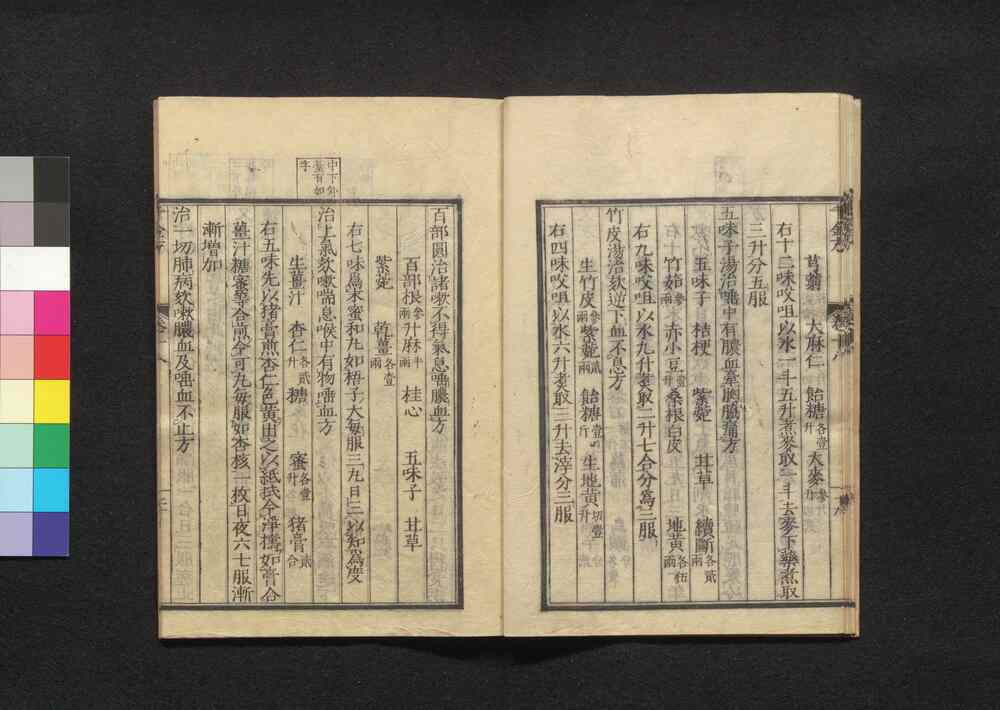 芎藭 大麻仁 飴糖各壹升 大麥參升
右十二味㕮咀以水一斗五升煮麥取一斗去麥下藥煮取
三升分五服
五味子湯治唾中有膿血牽胸脇痛方
五味子 桔梗 紫菀 甘草 續斷各貳兩
竹茹參兩 赤小豆壹升 桑根白皮 地黃各伍兩
右九味㕮咀以水九升煮取二升七合分爲三服
竹皮湯治欬逆下血不息方
生竹皮參兩 紫菀貳兩 飴糖壹斤 生地黃切壹升
右四味㕮咀以水六升煮取三升去滓分三服
中下針
並有如
字
百部圓治諸嗽不得氣息唾膿血方
百部根貳兩 升麻半兩 桂心 五味子 甘草
紫菀 乾薑各壹兩
右七味爲末蜜和丸如梧子大每服三丸日三以知爲度
治上氣欬嗽喘息喉中有物唾血方
生薑汁 杏仁各貳升 糖 蜜各壹升 猪膏貳合
右五味先以猪膏煎杏仁色黃出之以紙拭令淨擣如膏合
薑汁糖蜜等合煎令可丸每服如杏核一枚日夜六七服漸
漸增加
治一切肺病欬嗽膿血及唾血不止方